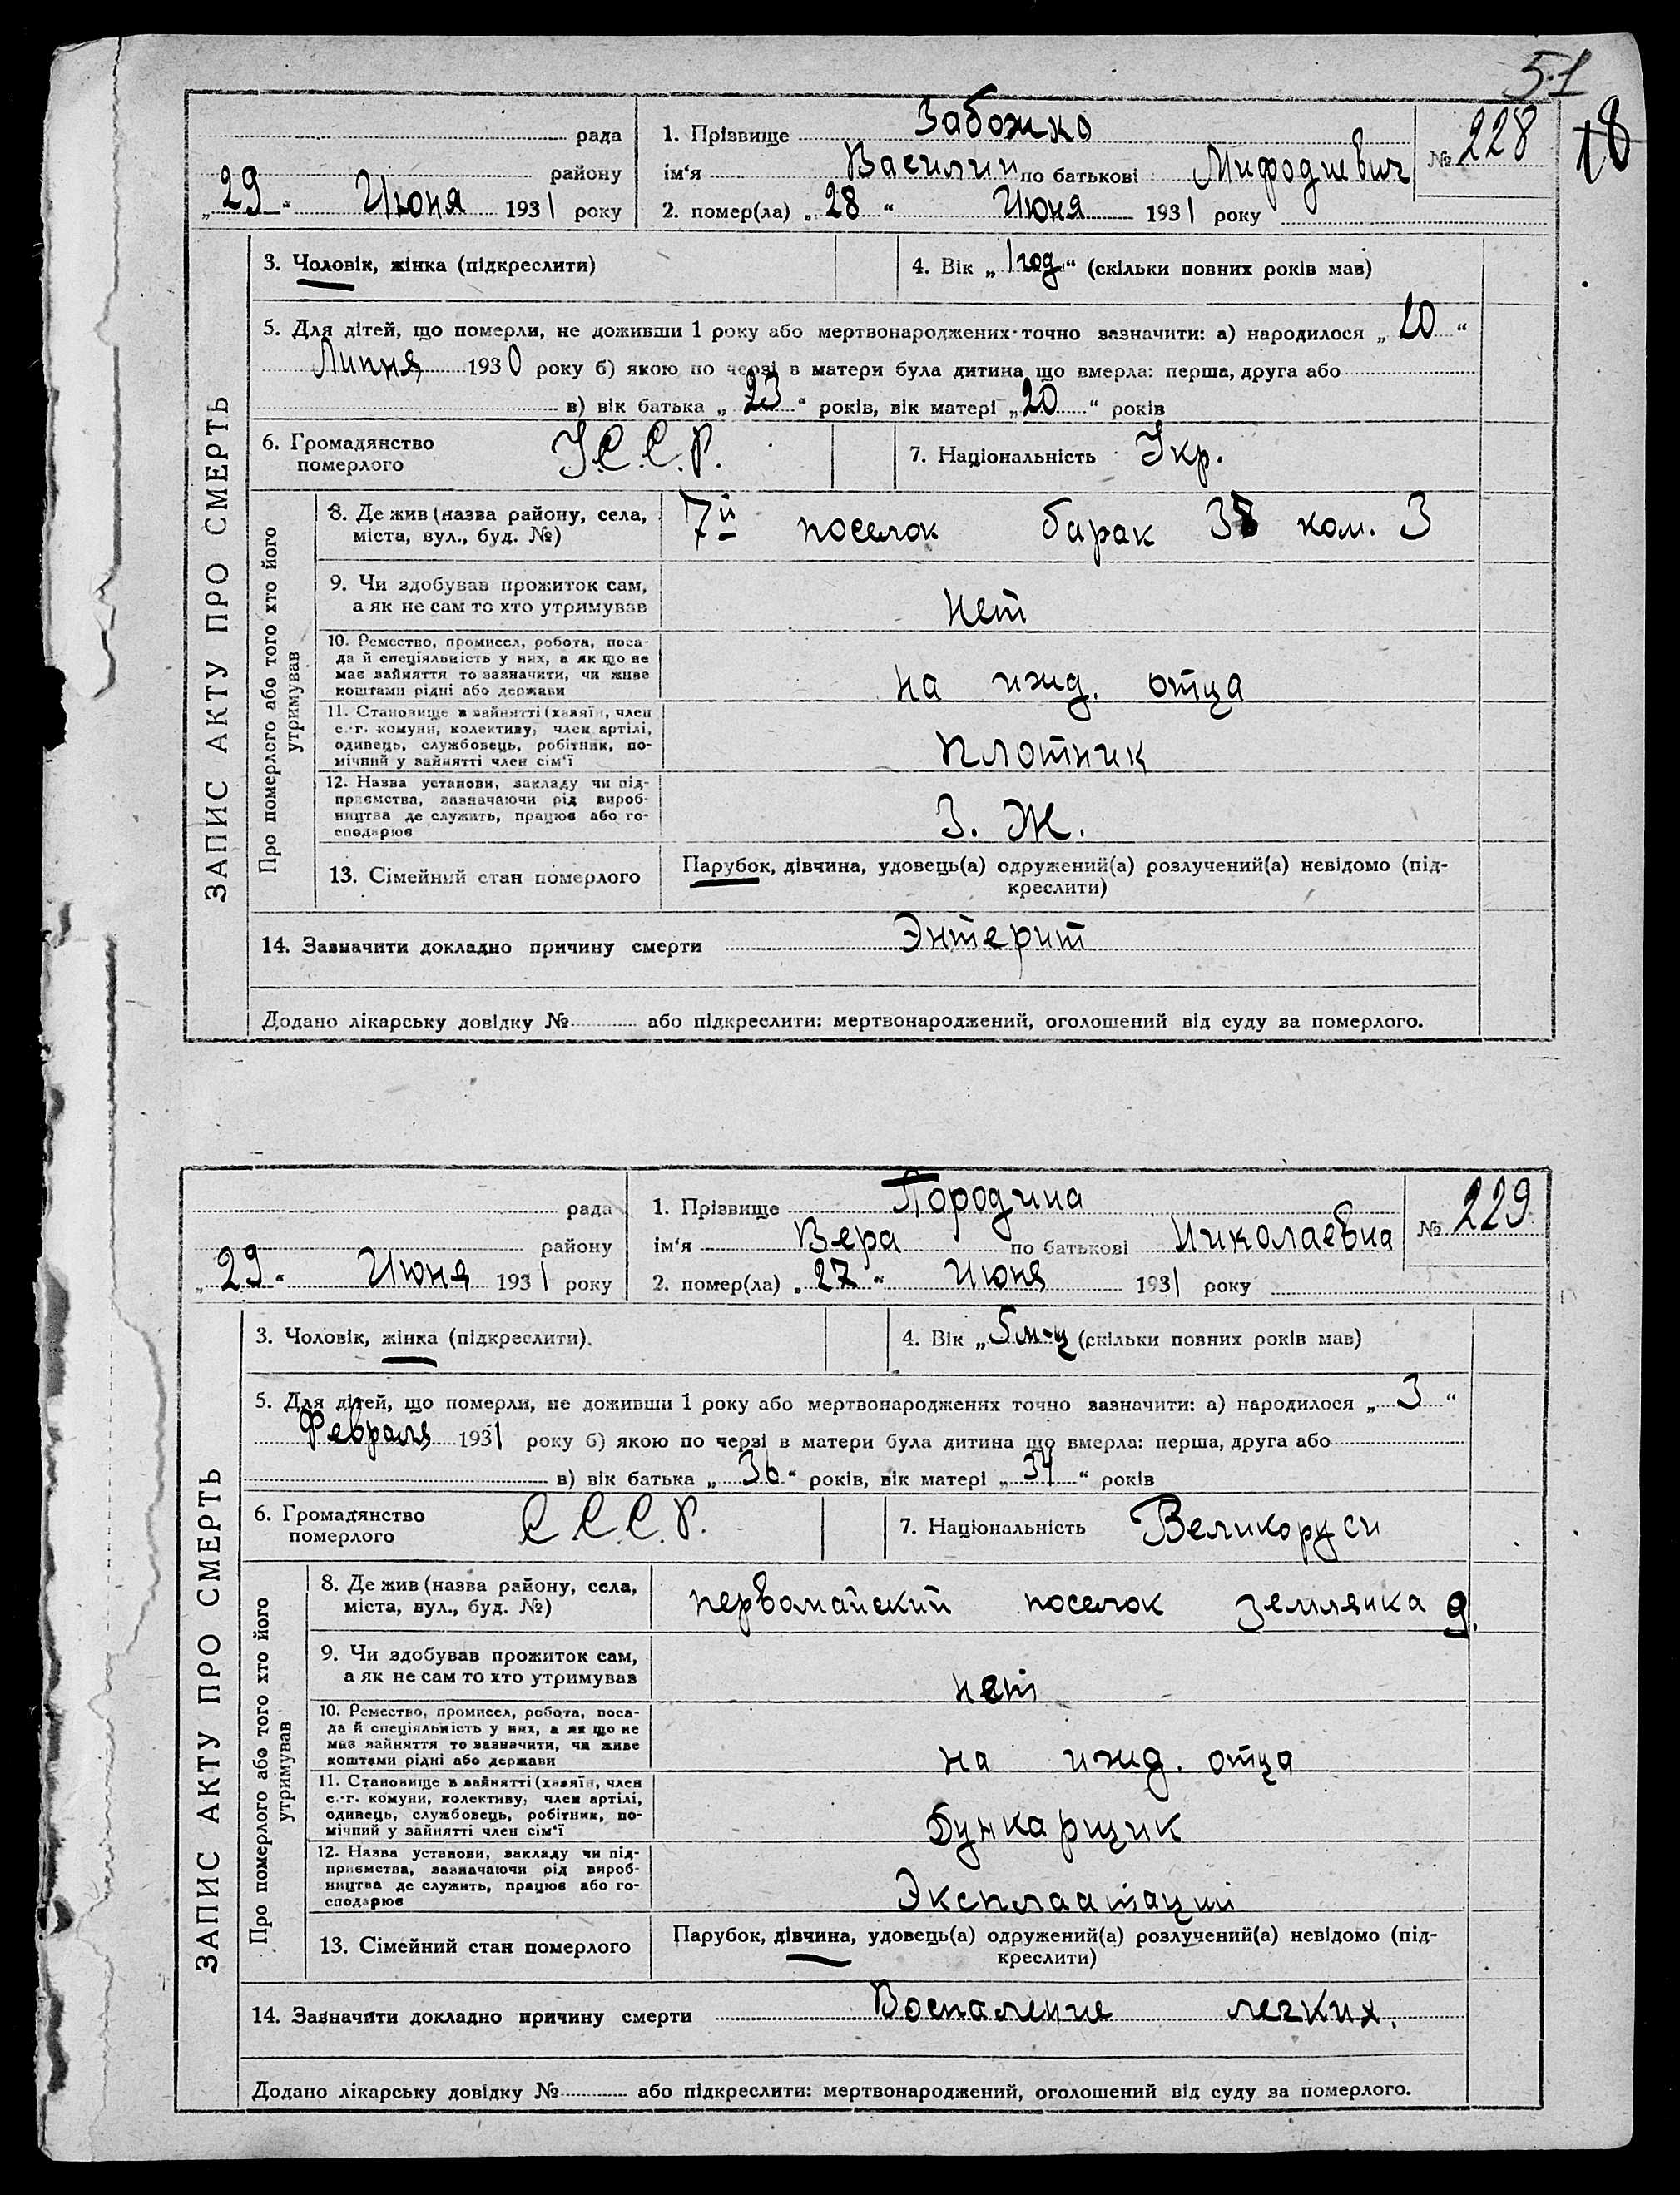 51
18
рада
1. Прізвище Забожко
№ 228
району
ім'я Василий по батькові Мифодиевич
„29" Июня 1931 року
2. помер(ла) „28" Июня 1931 року
ЗАПИС АКТУ ПРО СМЕРТЬ
3. Чоловік, жінка (підкреслити)
4. Вік „1 год" (скільки повних років мав)
5. Для дітей, що померли, не доживши 1 року або мертвонароджених точно зазначити: а) народилося „20"
Липня 1930 року б) якою по черзі в матери була дитина що вмерла: перша, друга або
в) вік батька „23" років, вік матері „20" років
6. Громадянство
померлого
У.С.С.Р.
7. Національність Укр.
Про померлого або того хто його
утримував
8. Де жив (назва району, села,
міста, вул., буд. №)
7й поселок барак 38 ком. 3
9. Чи здобував прожиток сам,
а як не сам то хто утримував
нет
10. Ремество, промисел, робота, поса-
да й спеціяльність у них, а як що не
має зайняття то зазначити, чи живе
коштами рідні або держави
на ижд. отца
11. Становище в зайнятті (хазяїн, член
с.-г. комуни, колективу, член артілі,
одинець, службовець, робітник, по-
мічний у зайнятті член сім'ї
плотник
12. Назва установи, закладу чи під-
приємства, зазначаючи рід вироб-
ництва де служить, працює або го-
сподарює
З. Ж.
13. Сімейний стан померлого
Парубок, дівчина, удовець(а) одружений(а) розлучений(а) невідомо (під-
креслити)
14. Зазначити докладно причину смерти Энтерит
Додано лікарську довідку № або підкреслити: мертвонароджений, оголошений від суду за померлого.
рада
1. Прізвище Породина
№ 229
району
ім'я Вера по батькові Николаевна
„29" Июня 1931 року
2. помер(ла) „27" Июня 1931 року
ЗАПИС АКТУ ПРО СМЕРТЬ
3. Чоловік, жінка (підкреслити).
4. Вік „5 м-ц (скільки повних років мав)
5. Для дітей, що померли, не доживши 1 року або мертвонароджених точно зазначити: а) народилося „3"
Февраля 1931 року б) якою по черзі в матери була дитина що вмерла: перша, друга або
в) вік батька „36" років, вік матері „34" років
6. Громадянство
померлого
С.С.С.Р.
7. Національність Великоруси
Про померлого або того хто його
утримував
8. Де жив (назва району, села,
міста, вул., буд. №)
первомайский поселок землянка 9.
9. Чи здобував прожиток сам,
а як не сам то хто утримував
нет
10. Ремество, промисел, робота, поса-
да й спеціяльність у них, а як що не
має зайняття то зазначити, чи живе
коштами рідні або держави
на ижд. отца
11. Становище в зайнятті (хазяїн, член
с.-г. комуни, колективу, член артілі,
одинець, службовець, робітник, по-
мічний у зайнятті член сім'ї
Бункарщик
12. Назва установи, закладу чи під-
приємства, зазначаючи рід вироб-
ництва де служить, працює або го-
сподарює
Эксплаатации
13. Сімейний стан померлого
Парубок, дівчина, удовець(а) одружений(а) розлучений(а) невідомо (під-
креслити)
14. Зазначити докладно причину смерти Воспаление легких.
Додано лікарську довідку № або підкреслити: мертвонароджений, оголошений від суду за померлого.